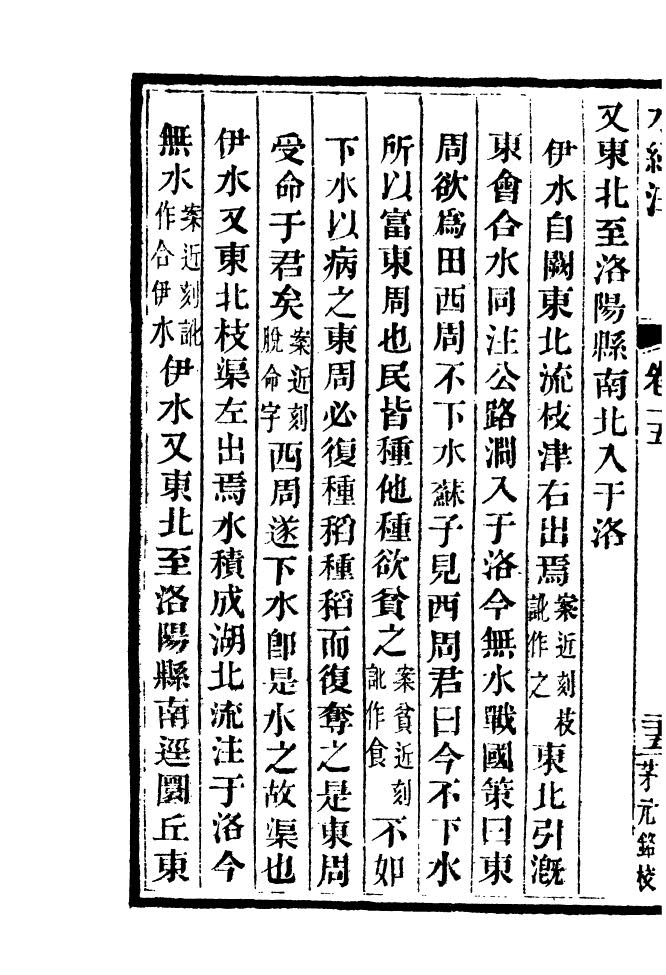 水經注 卷十五 三五 茅元銘校
又東北至洛陽縣南北入于洛
伊水自闕東北流枝津右出焉案近刻枝訛作之東北引溉
東會合水同注公路澗入于洛今無水戰國策曰東
周欲爲田西周不下水蘇子見西周君曰今不下水
所以富東周也民皆種他種欲貧之案貧近刻訛作食不如
下水以病之東周必復種稻種稻而復奪之是東周
受命于君矣案近刻脫命字西周遂下水卽是水之故渠也
伊水又東北枝渠左出焉水積成湖北流注于洛今
無水案近刻訛作合伊水伊水又東北至洛陽縣南逕圜丘東